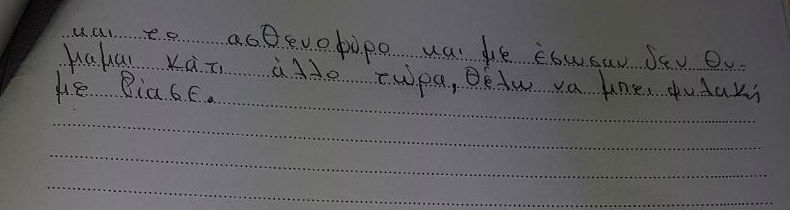 και το ασθενοφόρο και με έσωσαν δεν θυ-
μαμαι κάτι άλλο τώρα, θέλω να μπει φυλακή
με βίασε.